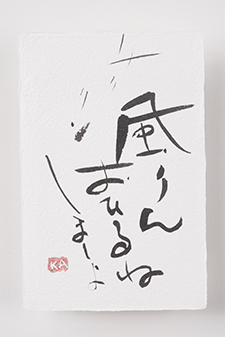 風りん
おひるね
しましょ
KA